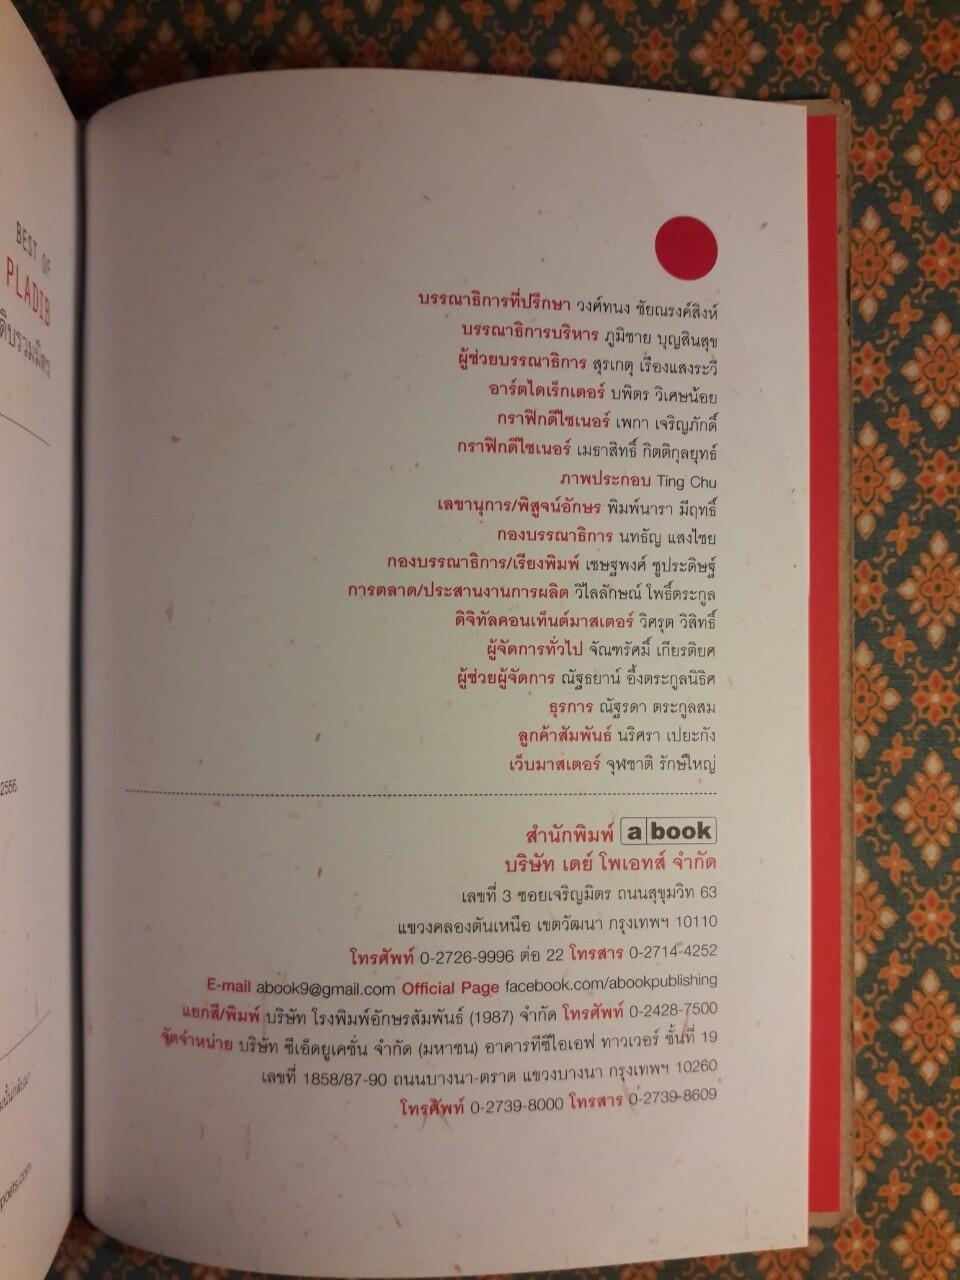 BEST OF
PLADIB
ดิบรวมมิตร
2556.
poets.com
บรรณาธิการที่ปรึกษา วงศ์ทนง ชัยณรงค์สิงห์
บรรณาธิการบริหาร ภูมิชาย บุญสินสุข
ผู้ช่วยบรรณาธิการ สุรเกตุ เรืองแสงระวี
อาร์ตไดเร็กเตอร์ บพิตร วิเศษน้อย
กราฟิกดีไซเนอร์ เพกา เจริญภักดิ์
กราฟิกดีไซเนอร์ เมธาสิทธิ์ กิตติกุลยุทธ์
ภาพประกอบ Ting Chu
เลขานุการ/พิสูจน์อักษร พิมพ์นารา มีฤทธิ์
กองบรรณาธิการ นทธัญ แสงไชย
กองบรรณาธิการ/เรียงพิมพ์ เชษฐพงศ์ ชูประดิษฐ์
การตลาด/ประสานงานการผลิต วิไลลักษณ์ โพธิ์ตระกูล
ดิจิทัลคอนเท็นต์มาสเตอร์ วิศรุต วิสิทธิ์
ผู้จัดการทั่วไป จัณฑรัศมิ์ เกียรติยศ
ผู้ช่วยผู้จัดการ ณัฐธยาน์ อึ้งตระกูลนิธิศ
ธุรการ ณัฐรดา ตระกูลสม
ลูกค้าสัมพันธ์ นริศรา เปยะกัง
เว็บมาสเตอร์ จุฬชาติ รักษ์ใหญ่
สำนักพิมพ์ a book
บริษัท เดย์ โพเอทส์ จำกัด
เลขที่ 3 ซอยเจริญมิตร ถนนสุขุมวิท 63
แขวงคลองตันเหนือ เขตวัฒนา กรุงเทพฯ 10110
โทรศัพท์ 0-2726-9996 ต่อ 22 โทรสาร 0-2714-4252
E-mail abook9@gmail.com Official Page facebook.com/abookpublishing
แยกสี/พิมพ์ บริษัท โรงพิมพ์อักษรสัมพันธ์ (1987) จำกัด โทรศัพท์ 0-2428-7500
จัดจำหน่าย บริษัท ซีเอ็ดยูเคชั่น จำกัด (มหาชน) อาคารทีซีไอเอฟ ทาวเวอร์ ชั้นที่ 19
เลขที่ 1858/87-90 ถนนบางนา-ตราด แขวงบางนา กรุงเทพฯ 10260
โทรศัพท์ 0-2739-8000 โทรสาร 0-2739-8609